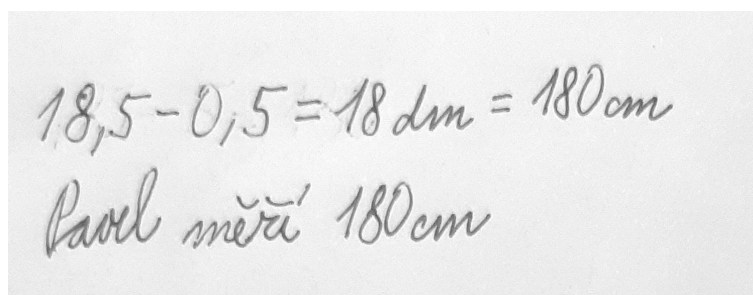 18,5-0,5=18dm=180cm
Pavel měří 180cm